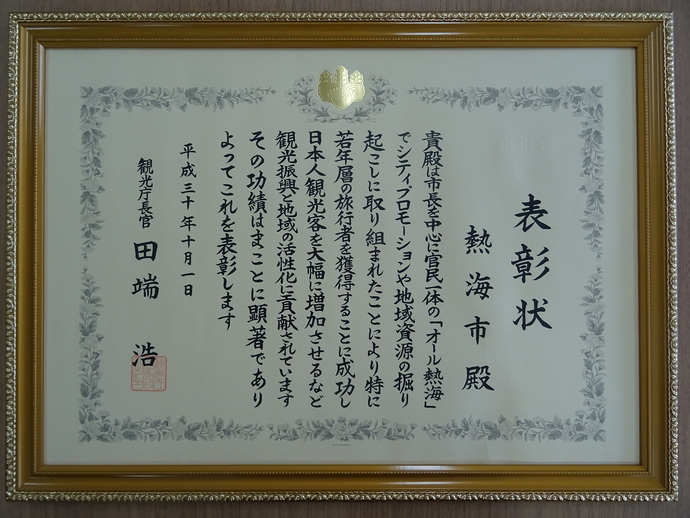 表彰状
熱海市殿
貴殿は市長を中心に官民一体の「オール熱海」
でシティプロモーションや地域資源の掘り
起こしに取り組まれたことにより特に
若年層の旅行者を獲得することに成功し
日本人観光客を大幅に増加させるなど
観光振興と地域の活性化に貢献されています
その功績はまことに顕著であり
よってこれを表彰します
平成三十年十月一日
観光庁長官 田端 浩